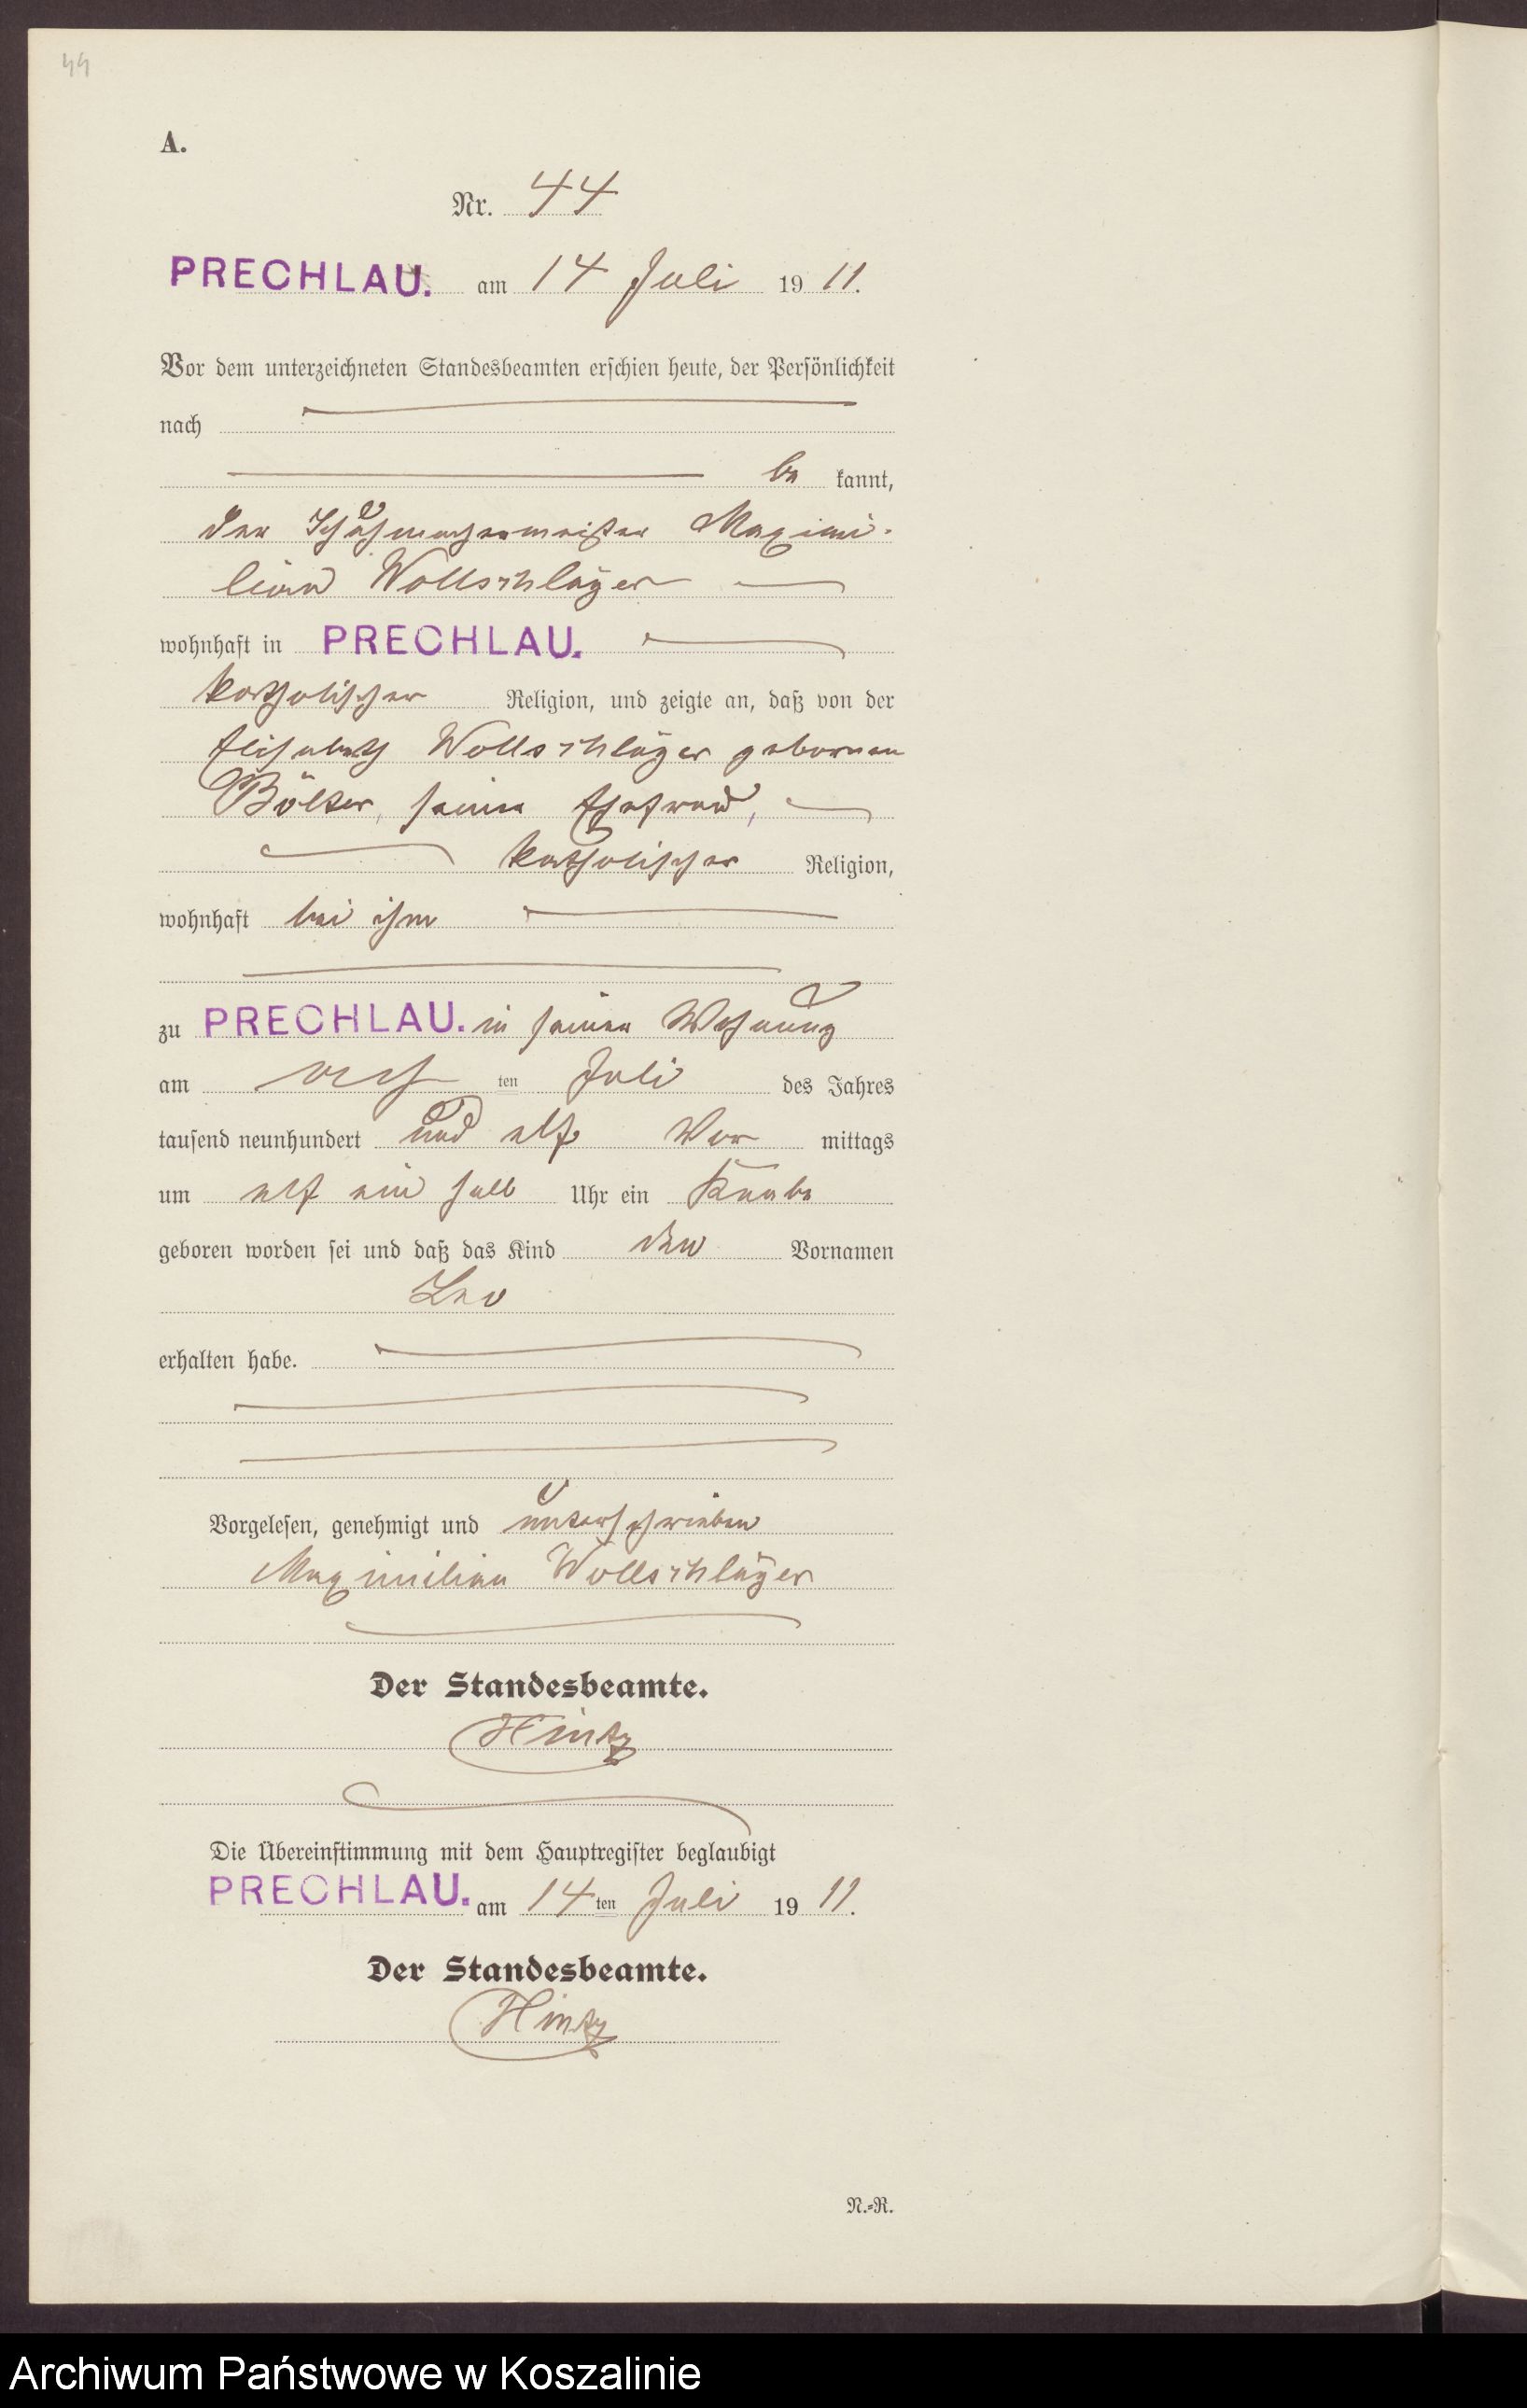 44
A.
Nr. 44
PRECHLAU. am 14 Juli 1911.
Vor dem unterzeichneten Standesbeamten erschien heute, der Persönlichkeit
nach
be kannt,
der Schuhmachermeister Maximi-
lian Wollschläger
wohnhaft in PRECHLAU.
katholischer Religion, und zeigte an, daß von der
Elisabeth Wollschläger gebornen
Bölter, seine Ehefrau,
katholischer Religion,
wohnhaft bei ihm
zu PRECHLAU. in seiner Wohnung
am acht ten Juli des Jahres
tausend neunhundert und elf Vor mittags
um elf ein halb Uhr ein Knabe
geboren worden sei und daß das Kind den Vornamen
Leo
erhalten habe.
Vorgelesen, genehmigt und unterschrieben
Maximilian Wollschläger
Der Standesbeamte.
Hintz
Die Übereinstimmung mit dem Hauptregister beglaubigt
PRECHLAU. am 14ten Juli 1911.
Der Standesbeamte.
Hintz
N.-R.
Archiwum Państwowe w Koszalinie